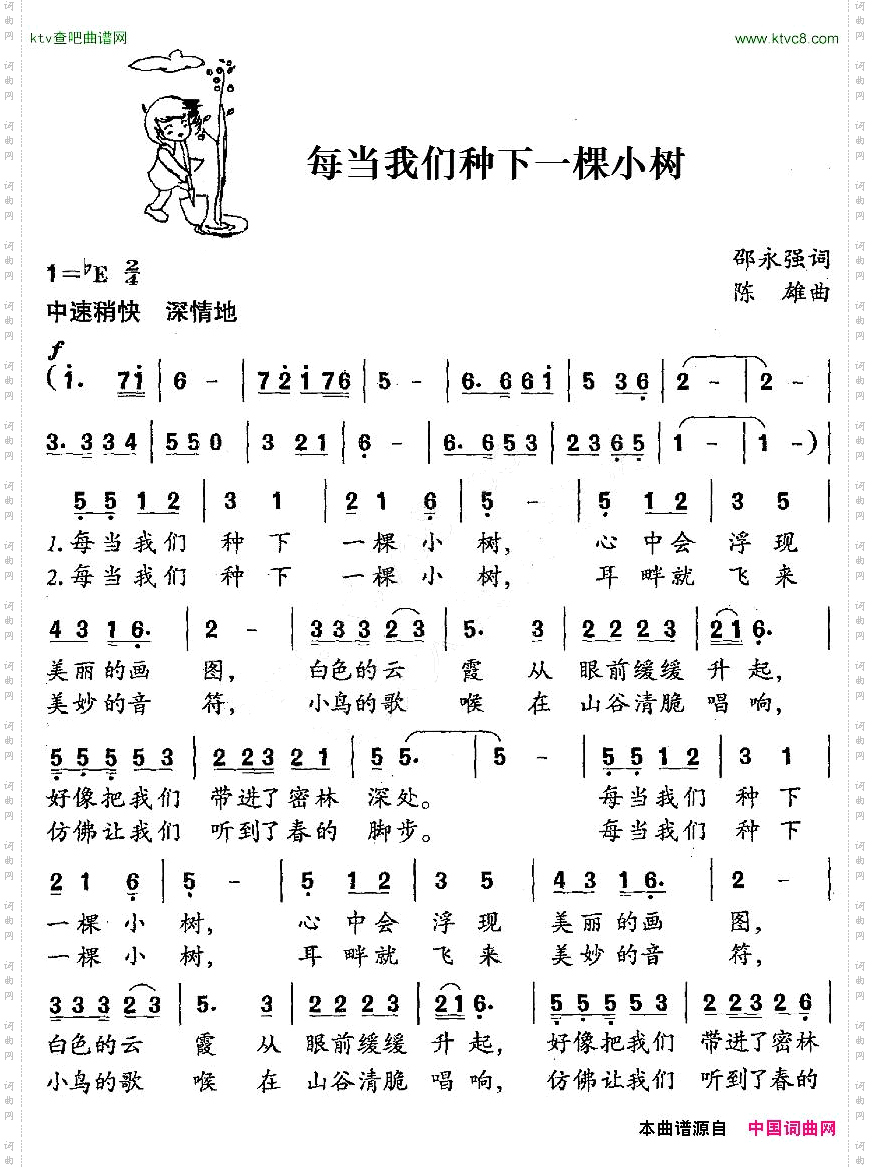 ktv查吧曲谱网 www.ktvc8.com
每当我们种下一棵小树
邵永强词
1=♭E 2/4
陈 雄曲
中速稍快 深情地
f
(i. 7i | 6 - | 72i76 | 5 - | 6. 66i | 5 36 | 2 - | 2 - |
3. 334 | 550 | 3 21 | 6 - | 6. 653 | 2365 | 1 - | 1 -) |
5 5 1 2 | 3 1 | 2 1 6 | 5 - | 5 1 2 | 3 5 |
1.每当我们 种 下 一棵 小 树, 心 中会 浮 现
2.每当我们 种 下 一棵 小 树, 耳 畔就 飞 来
4 3 1 6. | 2 - | 3 3 3 2 3 | 5. 3 | 2 2 2 3 | 2 1 6. |
美丽的画 图, 白色的云 霞 从 眼前缓缓 升起,
美妙的音 符, 小鸟的歌 喉 在 山谷清脆 唱响,
5 5 5 5 3 | 2 2 3 2 1 | 5 5. | 5 - | 5 5 1 2 | 3 1 |
好像把我们 带进了密林 深处。 每当我们 种 下
仿佛让我们 听到了春的 脚步。 每当我们 种 下
2 1 6 | 5 - | 5 1 2 | 3 5 | 4 3 1 6. | 2 - |
一棵 小 树, 心 中会 浮 现 美丽的画 图,
一棵 小 树, 耳 畔就 飞 来 美妙的音 符,
3 3 3 2 3 | 5. 3 | 2 2 2 3 | 2 1 6. | 5 5 5 5 3 | 2 2 3 2 6 |
白色的云 霞 从 眼前缓缓 升起, 好像把我们 带进了密林
小鸟的歌 喉 在 山谷清脆 唱响, 仿佛让我们 听到了春的
本曲谱源自 中国词曲网